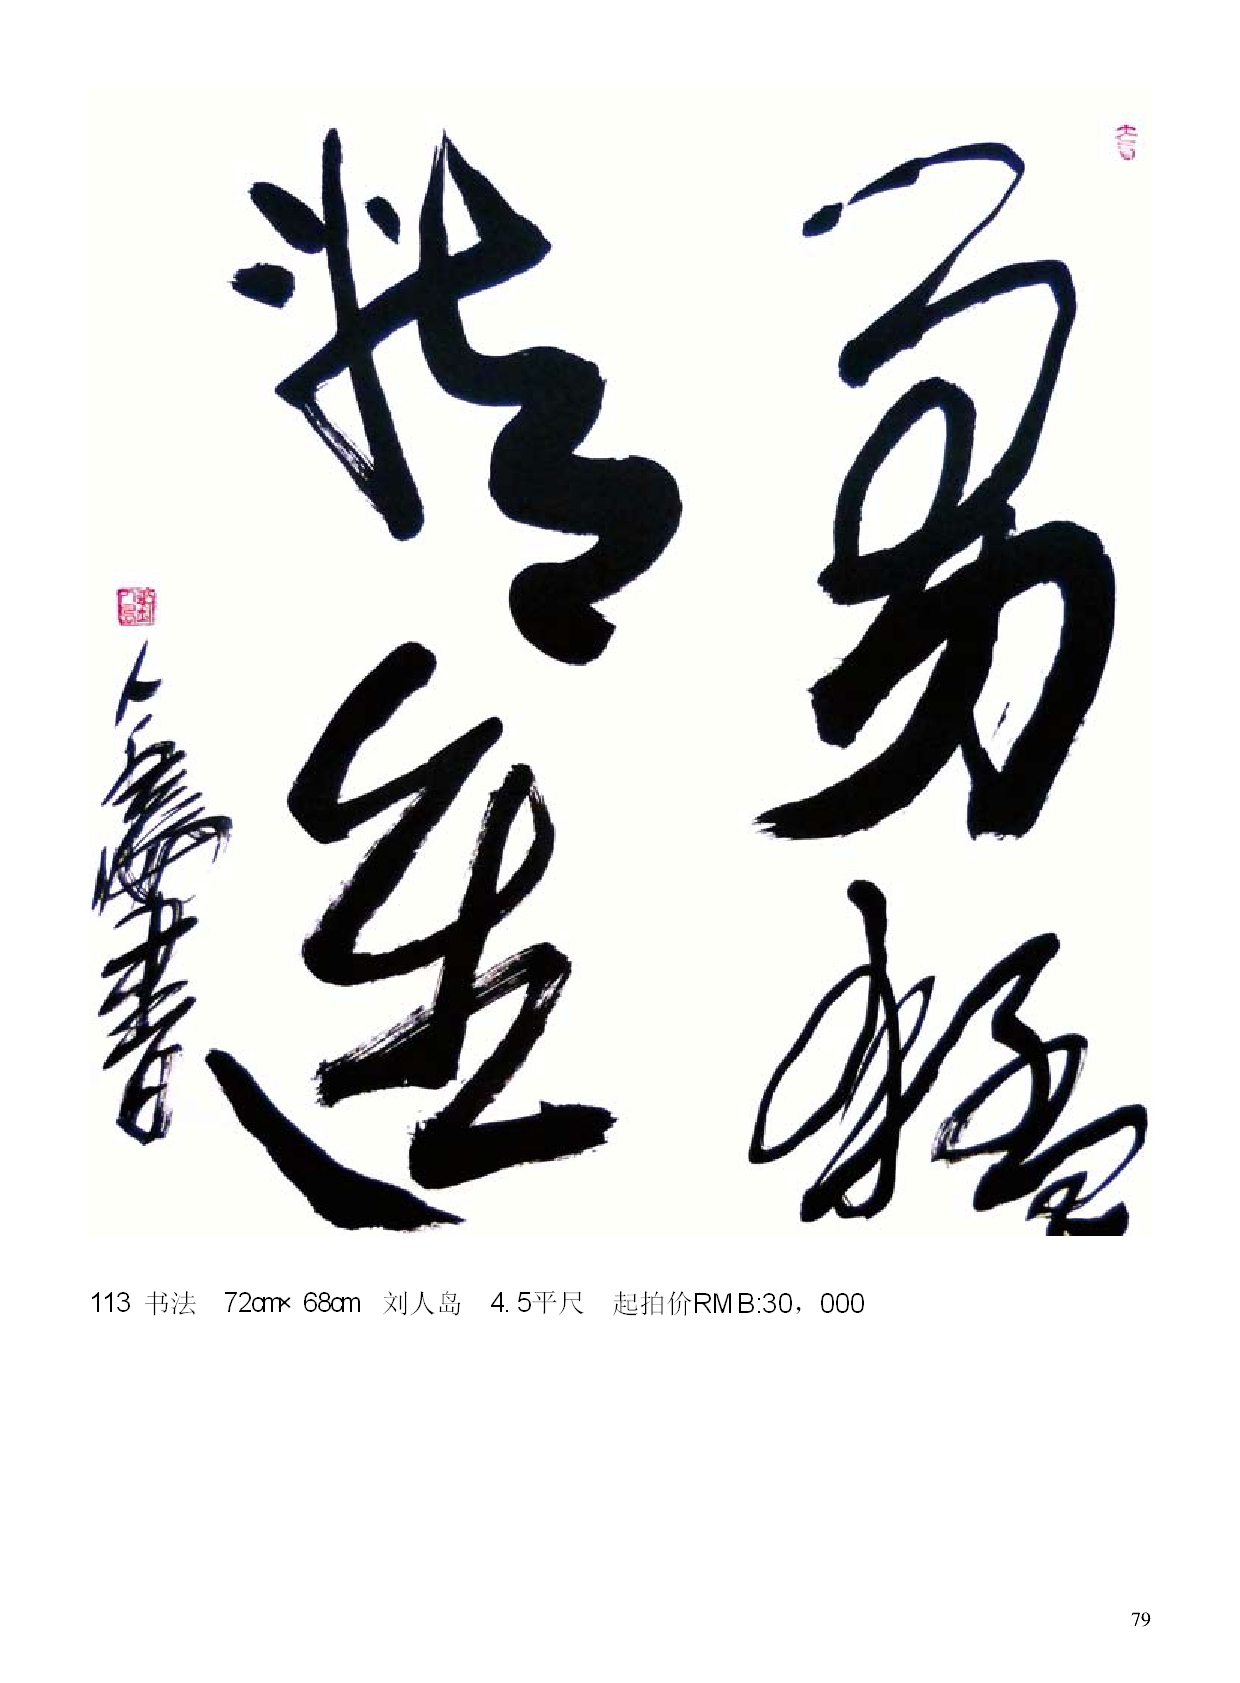 勇猛
精進
人島書
113 书法 72cm×68cm 刘人岛 4.5平尺 起拍价RMB:30，000
79